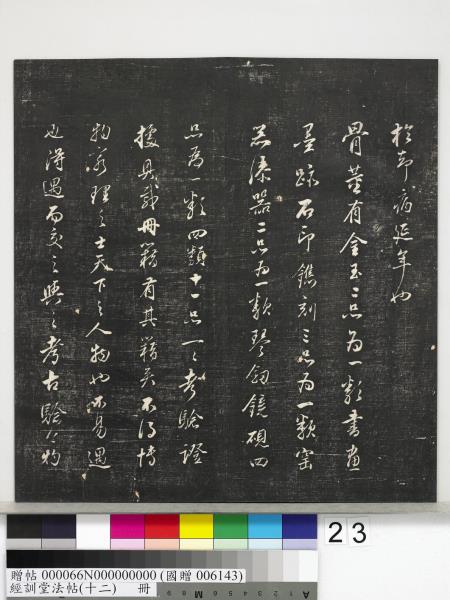 於却病延年也
骨董有金玉二品為一類書畫
墨跡石印鐫刻三品為一類窑
器漆器二品為一類琴劍鏡硯四
品為一類四類十一品一一考驗證
據具載冊籍有其籍矣不得博
物窮理之士天下之人物也不易遇
也得遇而交之與之考古驗今物
23
贈帖 000066N000000000 (國贈 006143)
經訓堂法帖(十二) 冊